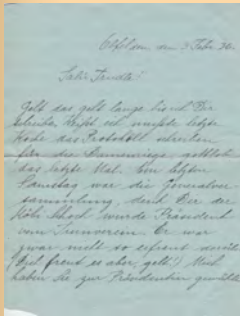 den 3. Febr. 36.
Gelt das geht lange bis ich Dir
schreibe. Weisst ich musste letzte
Woche das Protokoll schreiben
für die Damenriege, gottlob
das letzte Mal. Am letzten
Samstag war die Generalver-
sammlung, denk Dir der
wurde Präsident
vom Turnverein. Er war
zwar nicht so erfreut
(Dich freut es aber, gelt!) Mich
haben sie zur Präsidentin gewählt